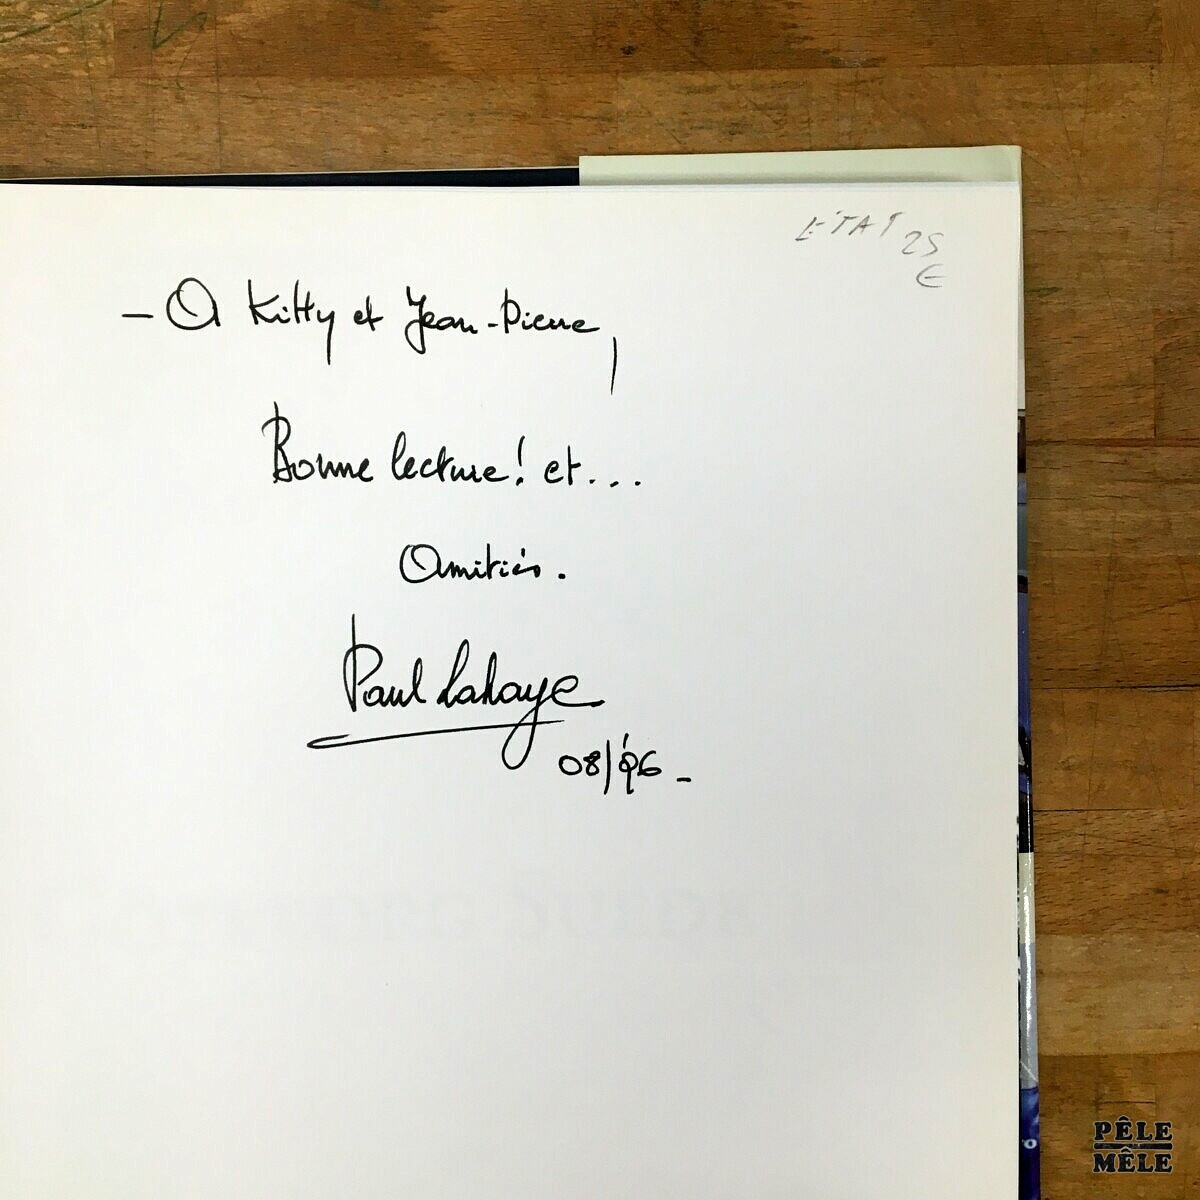 ETAT 25
€
- A Kitty et Jean-Pierre,
Bonne lecture! et...
Amitiés.
Paul Lahaye
08/96 -
PÊLE
MÊLE